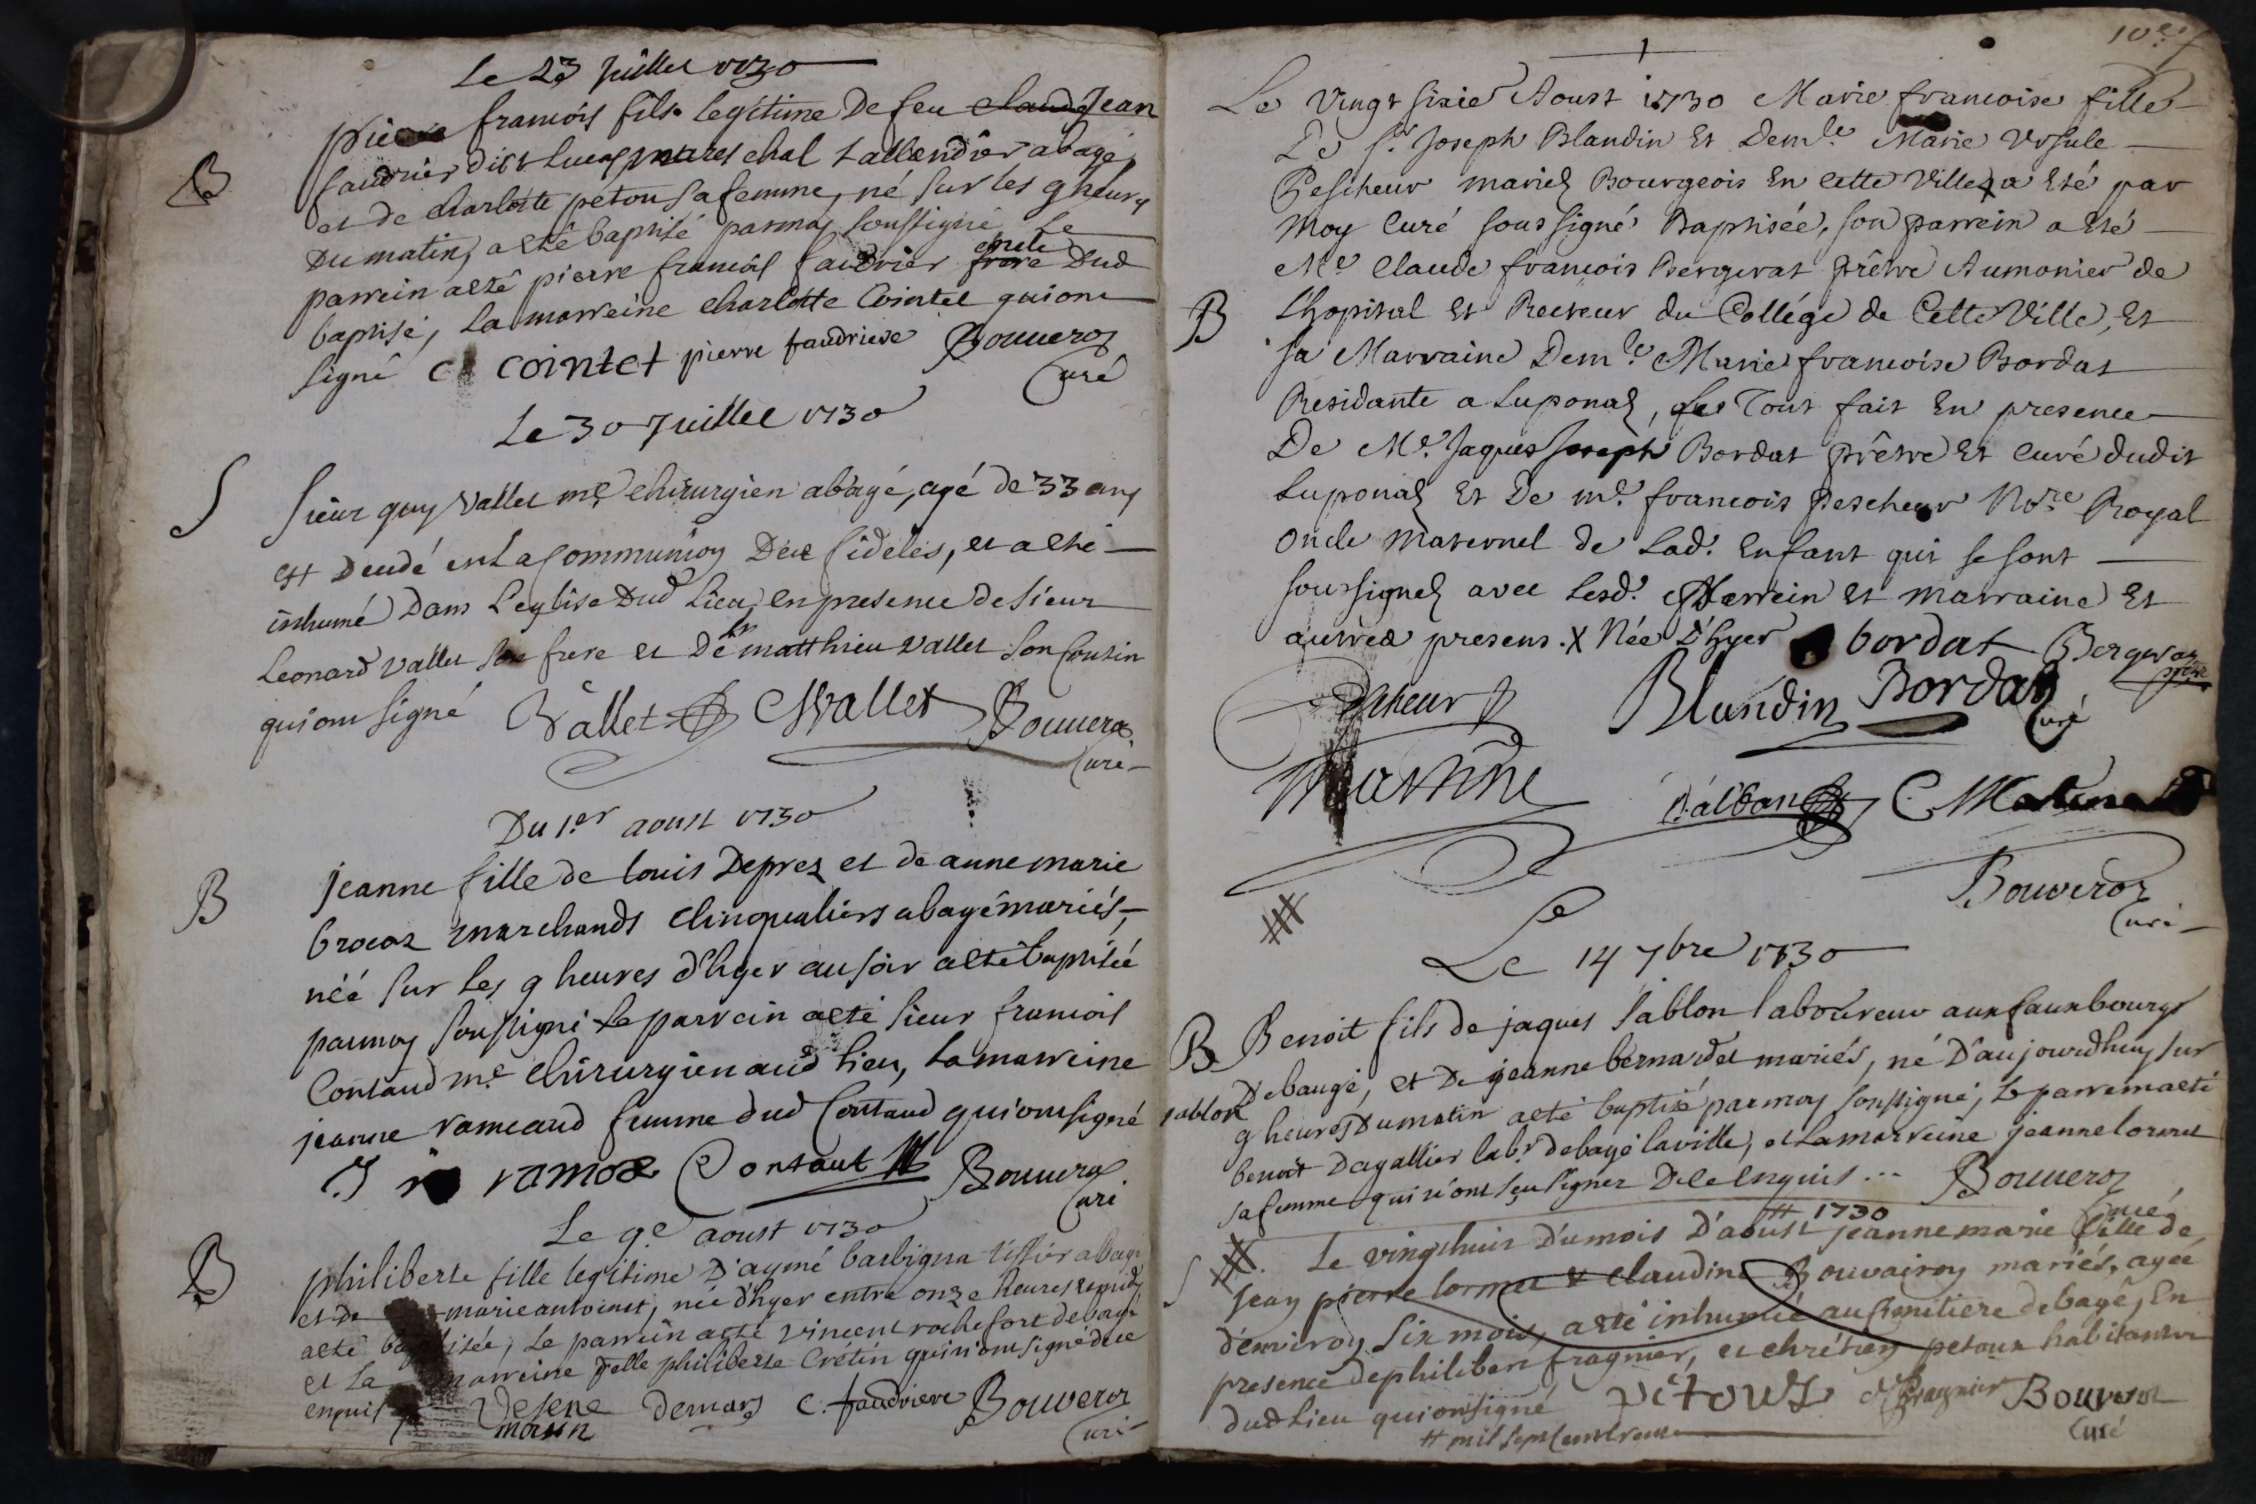 Le 23 Juillet 1730
B
pierre francois fils legitime De feu claude Jean
faudrier dict Lucas mareschal tallendier a bagé,
et de charlotte petou sa femme, né sur les 9 heures
Du matin, a esté baptisé par moy soussigné Le
parrein a esté pierre francois faudrier frere oncle Dud
baptisé, La marreine charlotte Cointet qui ont
signé C cointet pierre faudriere Bouveroz
Curé
Le 30 Juillet 1730
S
Sieur guy vallet me chirurgien a bagé, agé de 33 ans
est decedé en La Communion Des fideles, et a esté
inhumé Dans L'eglise Dud Lieu, en presence de sieur
Leonard vallet son frere et De sr matthieu vallet son Cousin
qui ont signé Vallet Mvallet Bouveroz
Curé
Du 1er aoust 1730
B
jeanne fille de louis Deprez et de anne marie
brocoz marchands clinqualiers a bagé mariés,
néé sur les 9 heures d'hyer au soir a esté baptisée
par moy soussigné Le parrein a esté sieur francois
Contaud me chirurgien aud Lieu, La marreine
jeanne rameaud femme dud Contaud qui ont signé
J ramoz Contaut Bouveroz
Curé
Le 9e aoust 1730
B
philiberte fille legitime D'aymé barbigna tissier a bagé
et de marie antoinet, née d'hyer entre onze heures et midy
a esté baptisée, Le parrein a esté vincent rochefort de bagé
et La marreine Delle philiberte Crétin qui n'ont signé de ce
enquis Desene demars C. faudriere Bouveroz
morin Curé
Le vingt sixie Aoust 1730 Marie francoise fille
De Sr Joseph Blandin Et Demle Marie Ursule
Pescheur mariez Bourgeois En cette Ville X a Eté par
Moy Curé soussigné Baptisée, son parrein a Eté
Me Claude francois Bergerat Prêtre Aumonier de
B
L'hopital Et Recteur du Collége de Cette Ville, Et
sa Marraine Demle Marie francoise Bordat
Residante a Luponaz, Le Tout fait En presence
De Me Jaques Joseph Bordat Prêtre Et Curé dudit
Luponaz Et De me francois Pescheur Nore Royal
Oncle Maternel de Lad. Enfant qui se sont
soussignez avec Lesd. Parrein Et Marraine Et
autres presens. X Née D'hyer bordat Bergerat
ptre
Pecheur Blandin Bordat
Curé
Martine Dalban C Matine
Bouveroz
Curé
Le 14 7bre 1730
B Benoit fils de jaques sablon laboureur aux fauxbourgs
De baugé, et De jeanne bernardet mariés, né D'aujourdhuy sur
sablon
9 heures Du matin a esté baptisé par moy soussigné, Le parrein a esté
benoit Dagallier labr de bagé la ville, et La marreine jeanne lornet
sa femme qui n'ont sçu signer De ce enquis... Bouveroz
Curé
# 1730
S
Le vingt huit Du mois D'aoust jeanne marie fille de
Jean pierre lornet & claudine Bouvairon mariés, agée
d'environ six mois, a esté inhumée au Cimitiere de bagé, En
presence de philibert fragnier, et chrétien petoux habitants
dud Lieu qui ont signé pétoux fragnier Bouveroz
Curé
# mil sept cent trente